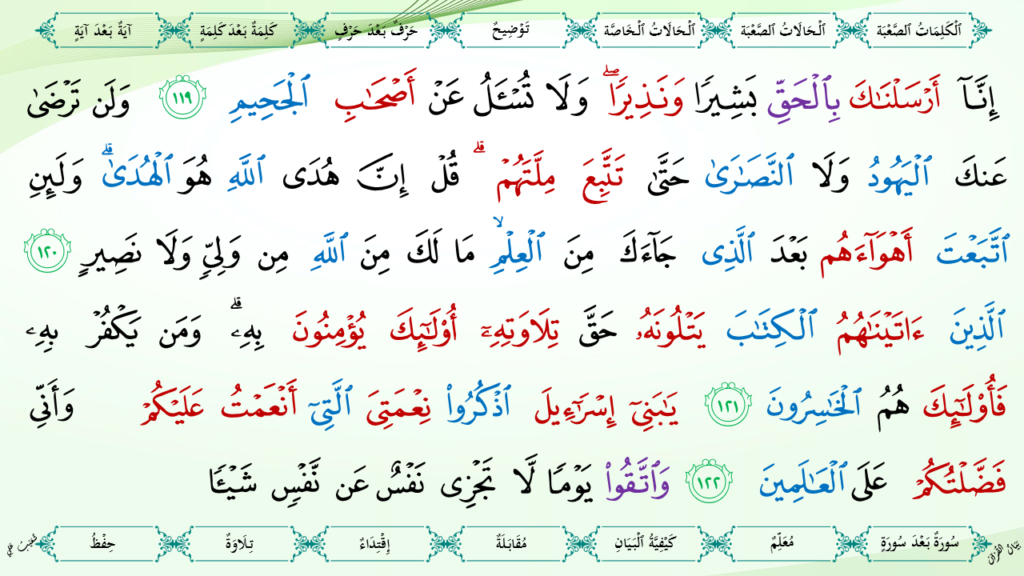 اَلْكَلِمَاتُ الصَّعْبَة اَلْحَالَاتُ الصَّعْبَة اَلْحَالَاتُ الْخَاصَّة تَوْضِيحٌ حَرْفٌ بَعْدَ حَرْفٍ كَلِمَةٌ بَعْدَ كَلِمَةٍ آيَةٌ بَعْدَ آيَةٍ
إِنَّآ أَرْسَلْنَـٰكَ بِٱلْحَقِّ بَشِيرًا وَنَذِيرًا ۖ وَلَا تُسْـَٔلُ عَنْ أَصْحَـٰبِ ٱلْجَحِيمِ ١١٩ وَلَن تَرْضَىٰ
عَنكَ ٱلْيَهُودُ وَلَا ٱلنَّصَـٰرَىٰ حَتَّىٰ تَتَّبِعَ مِلَّتَهُمْ ۗ قُلْ إِنَّ هُدَى ٱللَّهِ هُوَ ٱلْهُدَىٰ ۗ وَلَئِنِ
ٱتَّبَعْتَ أَهْوَآءَهُم بَعْدَ ٱلَّذِى جَآءَكَ مِنَ ٱلْعِلْمِ ۙ مَا لَكَ مِنَ ٱللَّهِ مِن وَلِىٍّ وَلَا نَصِيرٍ ١٢٠
ٱلَّذِينَ ءَاتَيْنَـٰهُمُ ٱلْكِتَـٰبَ يَتْلُونَهُۥ حَقَّ تِلَاوَتِهِۦٓ أُو۟لَـٰٓئِكَ يُؤْمِنُونَ بِهِۦ ۗ وَمَن يَكْفُرْ بِهِۦ
فَأُو۟لَـٰٓئِكَ هُمُ ٱلْخَـٰسِرُونَ ١٢١ يَـٰبَنِىٓ إِسْرَٰٓءِيلَ ٱذْكُرُوا۟ نِعْمَتِىَ ٱلَّتِىٓ أَنْعَمْتُ عَلَيْكُمْ وَأَنِّى
فَضَّلْتُكُمْ عَلَى ٱلْعَـٰلَمِينَ ١٢٢ وَٱتَّقُوا۟ يَوْمًا لَّا تَجْزِى نَفْسٌ عَن نَّفْسٍ شَيْـًٔا
سُورَةٌ بَعْدَ سُورَةٍ مُعَلِّمٌ كَيْفِيَّةُ الْبَيَانِ مُقَابَلَةٌ إِقْتِدَاءٌ تِلَاوَةٌ حِفْظُ